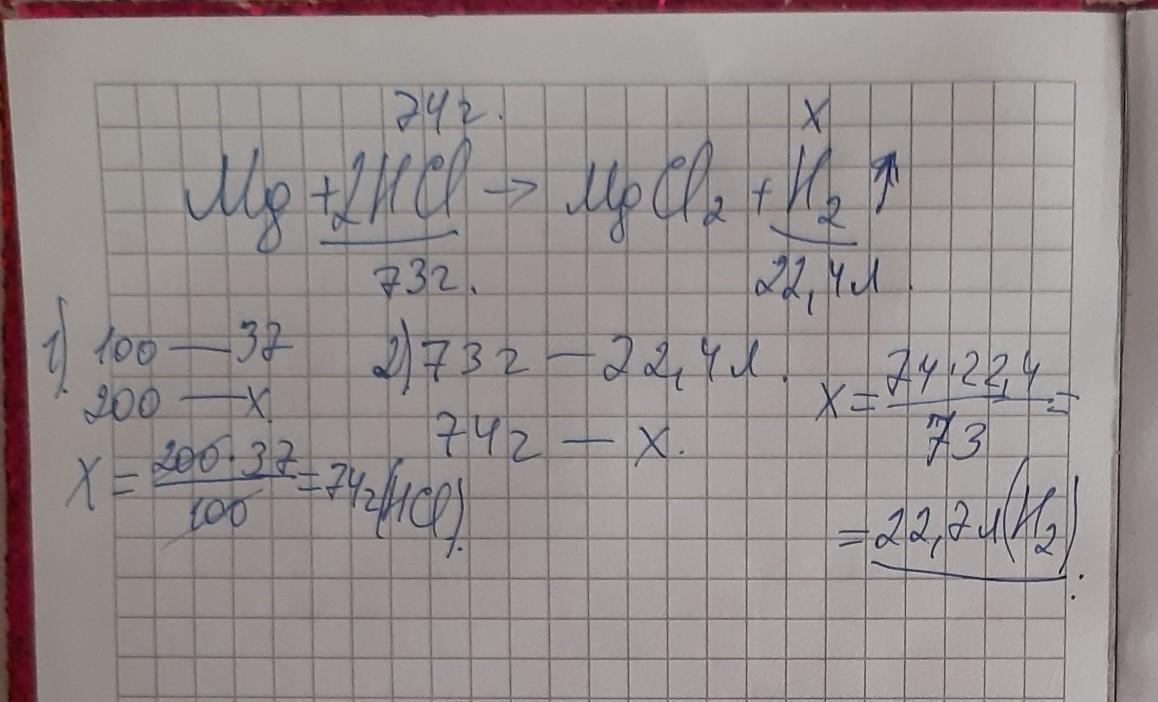 74 г. X
Mg + 2HCl → MgCl₂ + H₂ ↑
73 г. 22,4 л
1) 100 — 37
200 — x
X = 200·37 / 100 = 74 г (HCl).
2) 73 г — 22,4 л.
74 г — x.
X = 74·22,4 / 73 =
= 22,7 л (H₂).